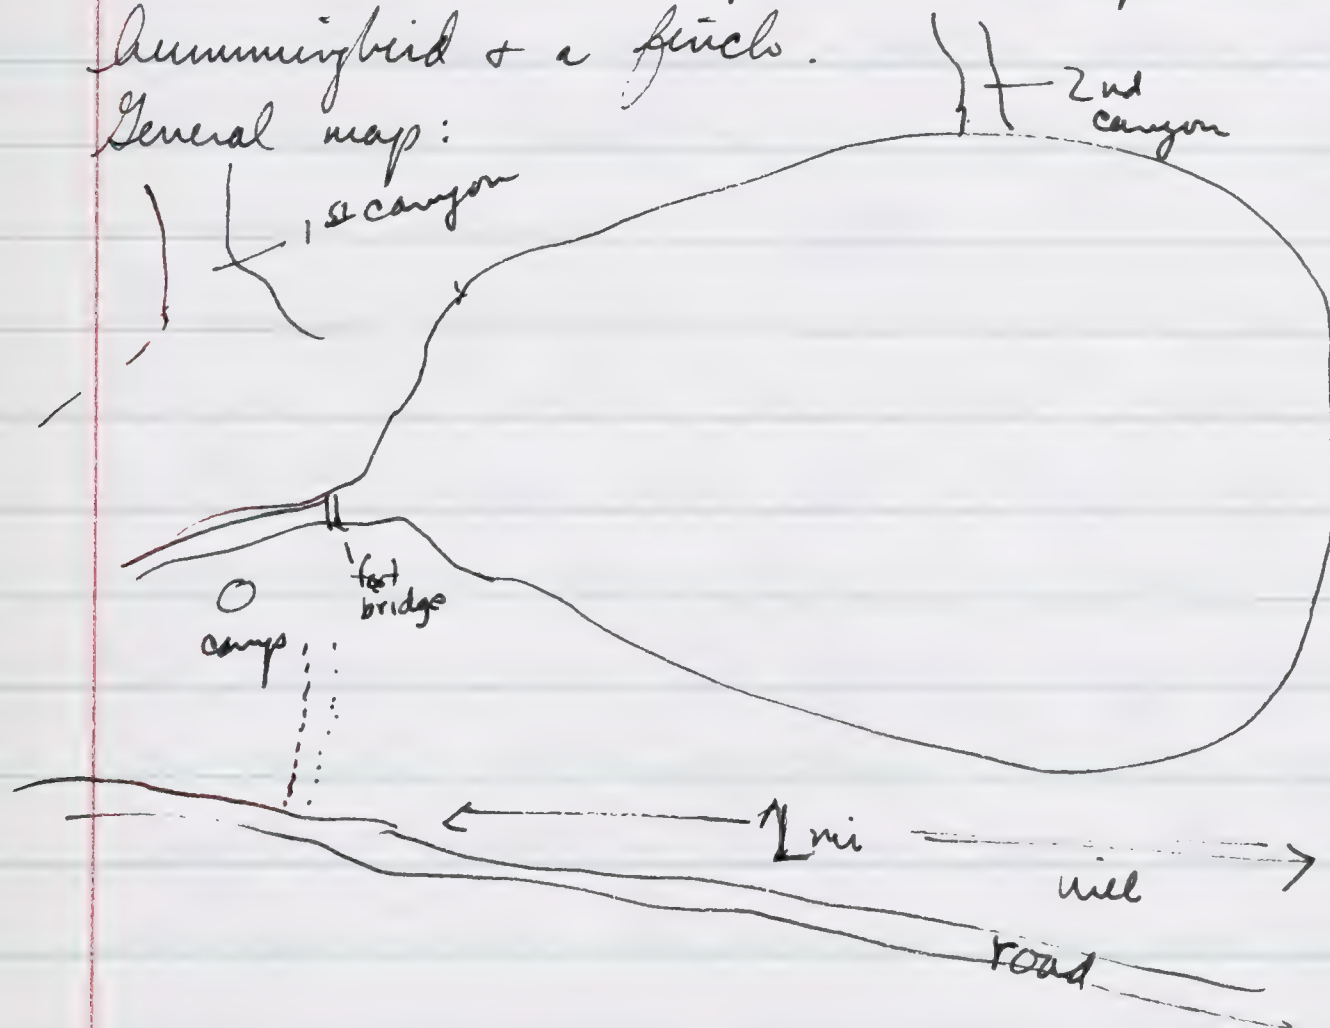 hummingbird & a finch.
General map:
2nd
canyon
1st canyon
foot
bridge
camp
1 mi
road